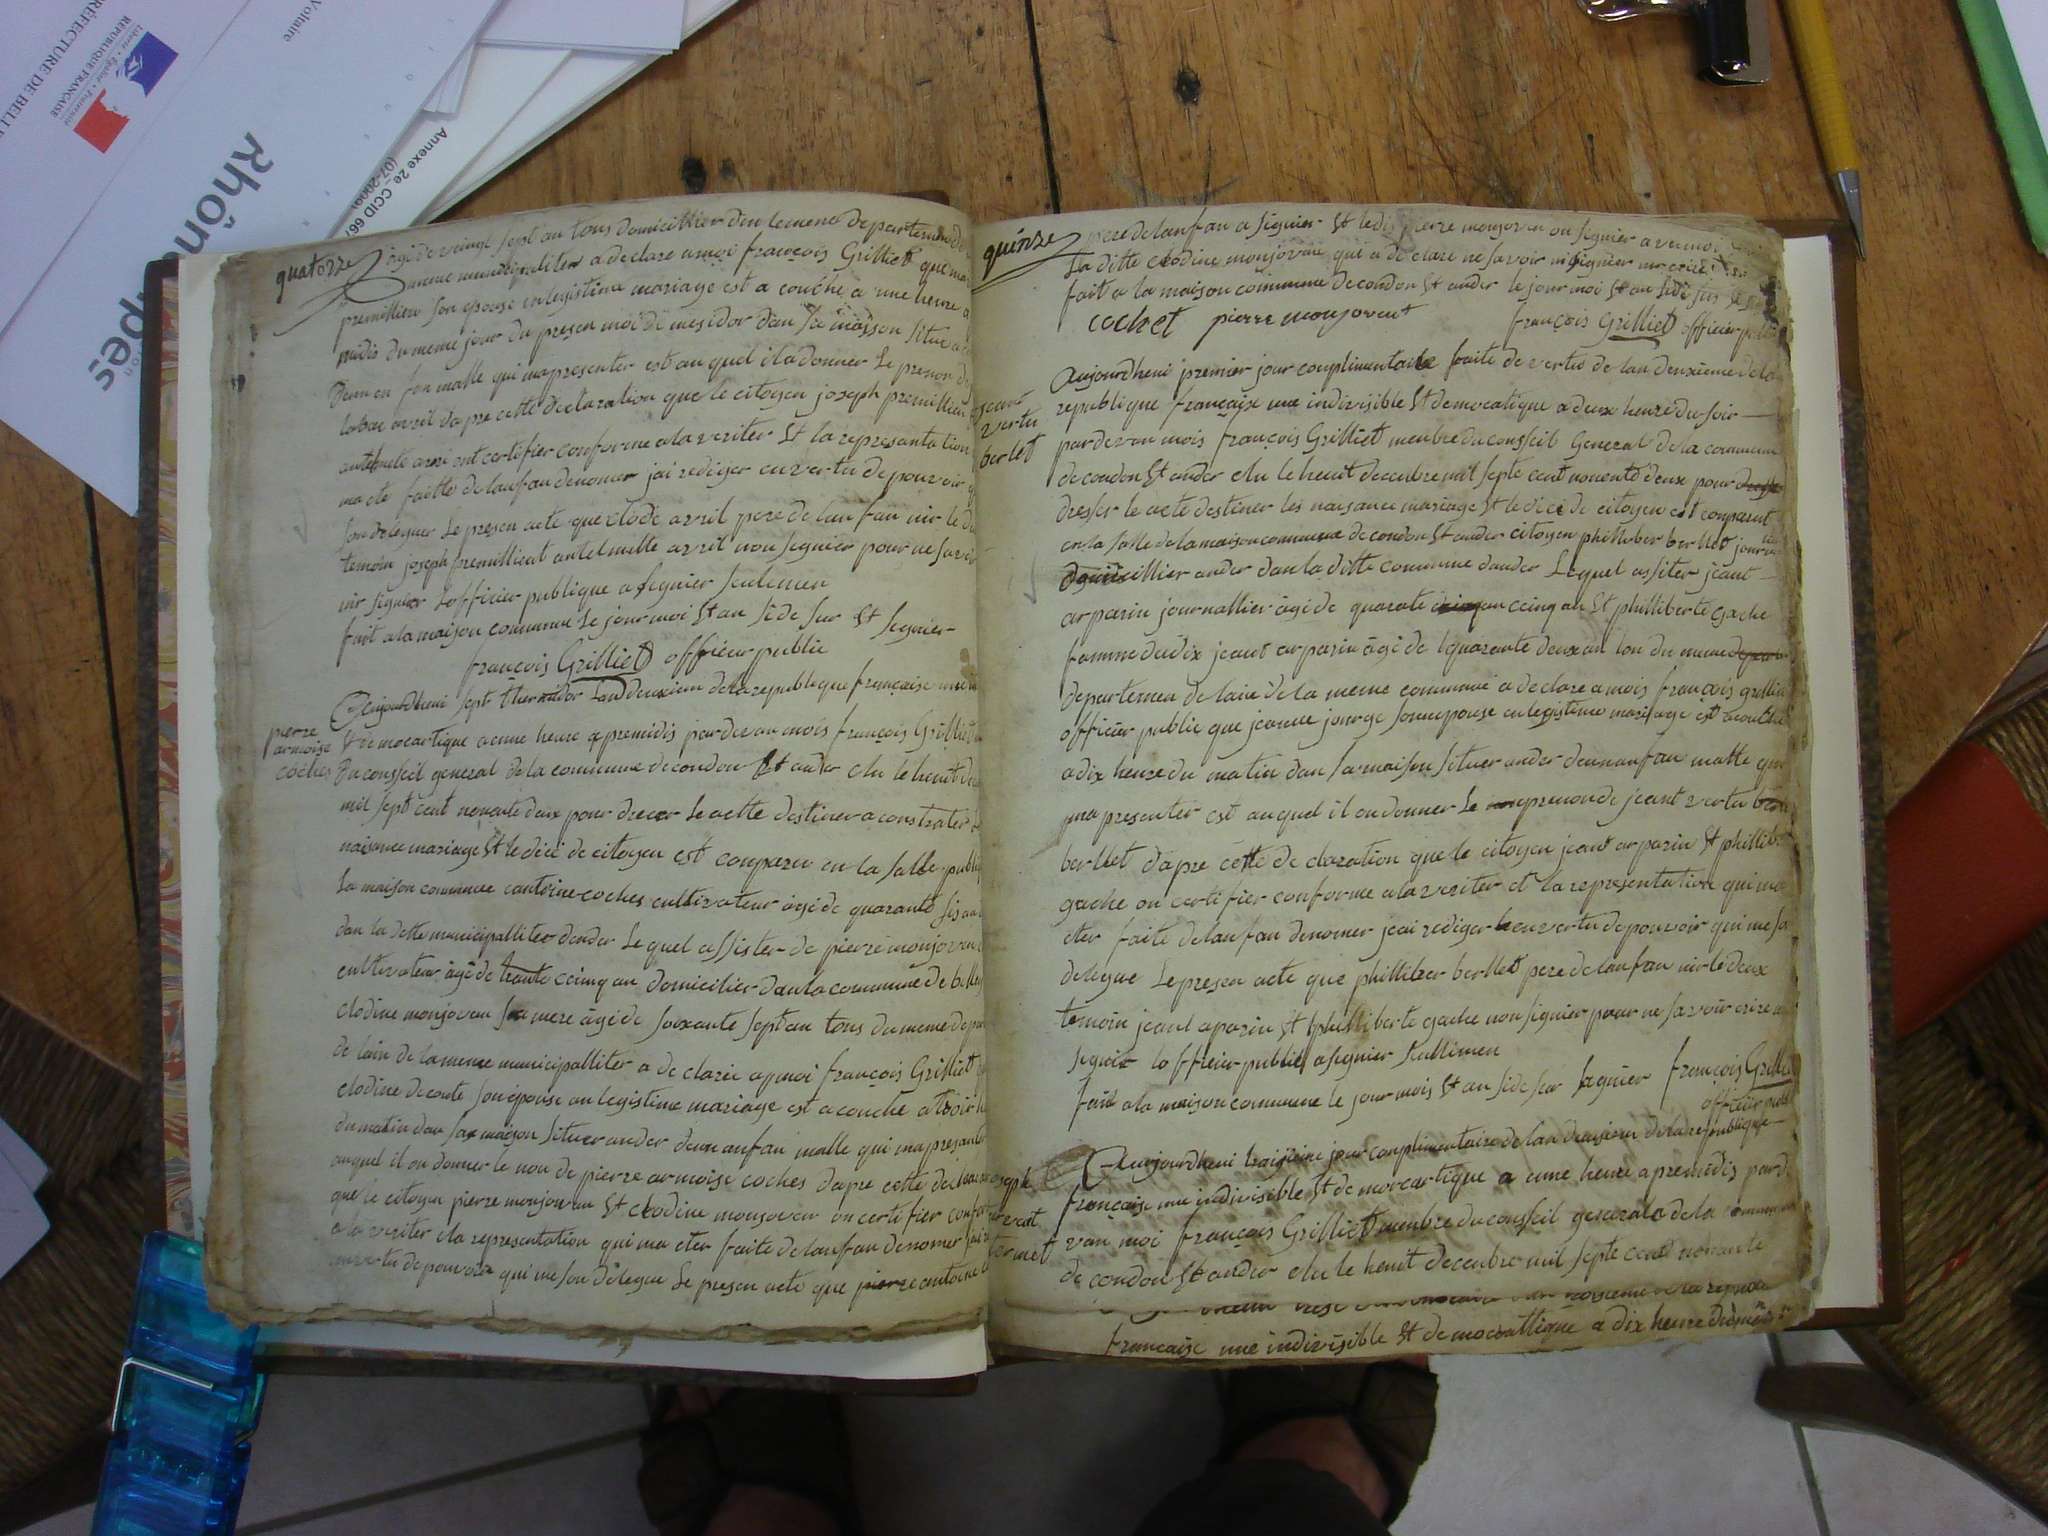 PRÉFECTURE DE BELLE
Liberté • Égalité • Fraternité
RÉPUBLIQUE FRANÇAISE
Voltaire
Rhône
Annexe 2e_CCID 66
(07-2009)
quatorze
âgé de veingt sept an tous domicillier den lemene departemen de
municipaliter a declare a moi françois Grilliet que
premillieu son epouse en legistime mariage est a couche a une heure a
midis du meme jour du presen moi de mesidor dan sa maison situe a
deun en fan malle qui ma presenter est au quel il a donner le prenon de
avril da pre cette declaration que le citoyen joseph premillieu
ont certifier conforme a la veriter St la representation
ma ete faitte de lanfan denomer jai rediger en vertu de pouvoir
son deleguer Le presen acte que clode avril pere de lan fan nir le
temoin joseph premillieut avril non signier pour ne savoir
nir signier Lofficier publique a signier seulemen
fait a la maison commune Le jour moi St an si de sur St signier
françois Grilliet officier public
pierre
armoise
coches
Aujourdheui sept thermidor Lan deuxiem de la republique françaisse une in
St democartique a eune heure apremidis par devan mois françois Grilliet
Du conseil general de la commune de condon St ander elu le heuit de
mil sept cent nonante deux pour drecer Le actte destiner a constrater
naisance mariage St le déci de citoyen est conparu en la salle publique
La maison commune cantoine coches cultivateur âgé de quarante sis an
dan la dette municipalliter dander Le quel assister de pierre monjovan
cultivateur âgé de trante ccinq an domicilier dan la commune de belley
clodine monjovan sa mere âgé de soixante sept an tous du meme depar
de lain de la meme municipalliter a de clarée a moi françois Grilliet
clodine decoute son épouse en legistime mariage est a couche a troi h
du matin dan sa maison situer ander deun anfan malle qui ma presanter
auquel il on donner le non de pierre armoise coches dapre cette declara
que le citoyen pierre monjovan St clodine monjovan on certifier confor
a la veriter St la representation qui ma eter faite de lanfan denomer jai re
en vertu de pouvoir qui me son délegue Le presen acte que pierre antoine
quinze
pere de lanfan a signier St ledis pierre monjovan on signier avec moi
La ditte clodine monjovan qui a de clare ne savoir ni signier ni ecrire
fait a la maison commune de condon St ander le jour moi St an si di sus
cochet pierre monjovent françois Grilliet officier public
jeant
vertu
berlet
Aujourdheui premier jour complimentaire faite de vertu de lan deuxieme de la
republique française une indivisible St democatique a deux heure du soir
par devan mois françois Grilliet meubre du conseil General de la commune
de condon St ander elu le heuit decenbre mil septe cent nonente deux pour
dresser le acte destiner les naisance mariage St le déci de citoyen est conparut
en la salle de la maison commune de condon St ander citoyen philliber berllet journa
domicillier ander dan la ditte commune dander Lequel assiter jeant
arparin journallier âgé de quarate ccinq an St philliberte gache
famme dudix jeant arparin âgé de quarante deux an tou du meme
departemen de lain de la meme commune a declare a mois françois grilliet
officier public que jeanne jonrge son epouse en legistime mariage est acouche
a dix heure du matin dan sa maison situer ander deun anfan malle qui
ma presenter est auquel il on donner Le prenon de jeant vertu
berllet dapre cette declaration que le citoyen jeant arparin St phillibert
gache on certifier conforme a la veriter et la representation qui ma
eter faite de lanfan denomer jeai rediger en vertu de pouvoir qui me son
delegue Le presen acte que phillilber berllet pere de lanfan nir le deux
temoin jeant aparin St philliberte gache non signier pour ne savoir crire
signier lofficier public a signier seullimen
fait a la maison commune le jour mois St an si de sur signier françois Grilliet
officier public
joseph
vermet
Aujourdheui troisieme jour complimentaire de lan deuxieme de la republique
française une indivisible St de morcartique a eune heure apremidis par de
van moi françois Grilliet menbre du conseil generale de la commune
de condon St ander elu le heuit decenbre mil septe cent nonante
française une indivisible St democrattique a dix heure du matin